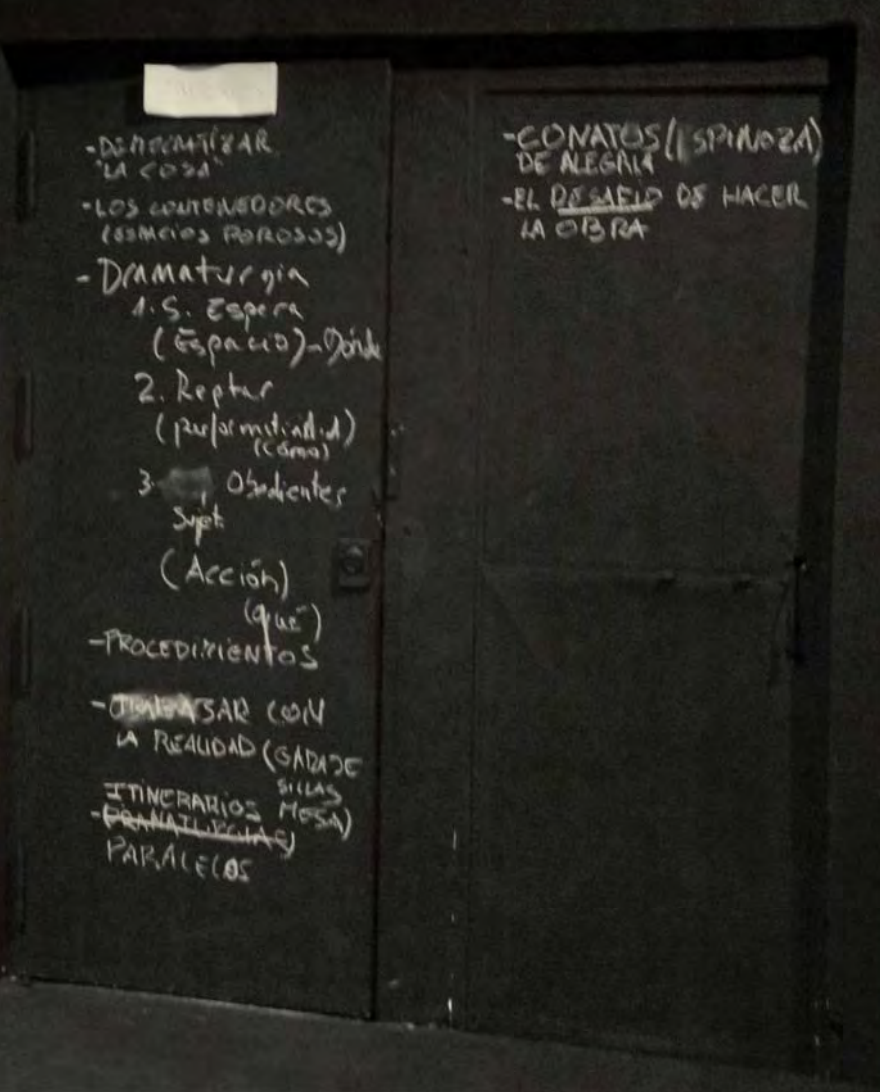 -DEMOCRATIZAR
"LA COSA"
-LOS CONTENEDORES
(ESPACIOS POROSOS)
-Dramaturgia
1. S. Espera
(Espacio)-Dónde
2. Reptar
(performatividad)
(Cómo)
3. Obedientes
Sujet.
(Acción)
(qué)
-PROCEDIMIENTOS
-SAR CON
LA REALIDAD (GARAJE
SILLAS
ITINERARIOS MESA)
-(DRAMATURGIAS)
PARALELOS
-CONATUS (ESPINOZA)
DE ALEGRIA
-EL DESAFIO DE HACER
LA OBRA